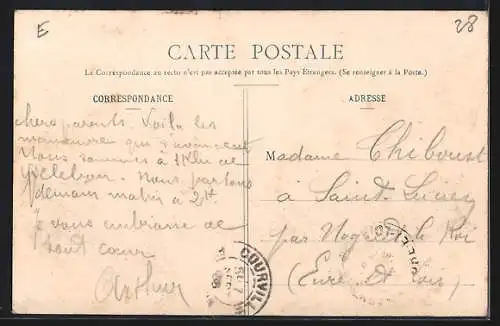 E
28
CARTE POSTALE
La Correspondance au recto n'est pas acceptée par tous les Pays Etrangers. (Se renseigner à la Poste.)
CORRESPONDANCE
ADRESSE
chers parents. Voila les
manœuvre qui s'avancent
Nous sommes à 1 Klm de
Nous partons
demain matin à 2H
Je vous embrasse de
tout cœur
Arthur
Madame Chiboust
à Saint Lucien
par Nogent le Roi
(Eure et Loir)
COURVILLE